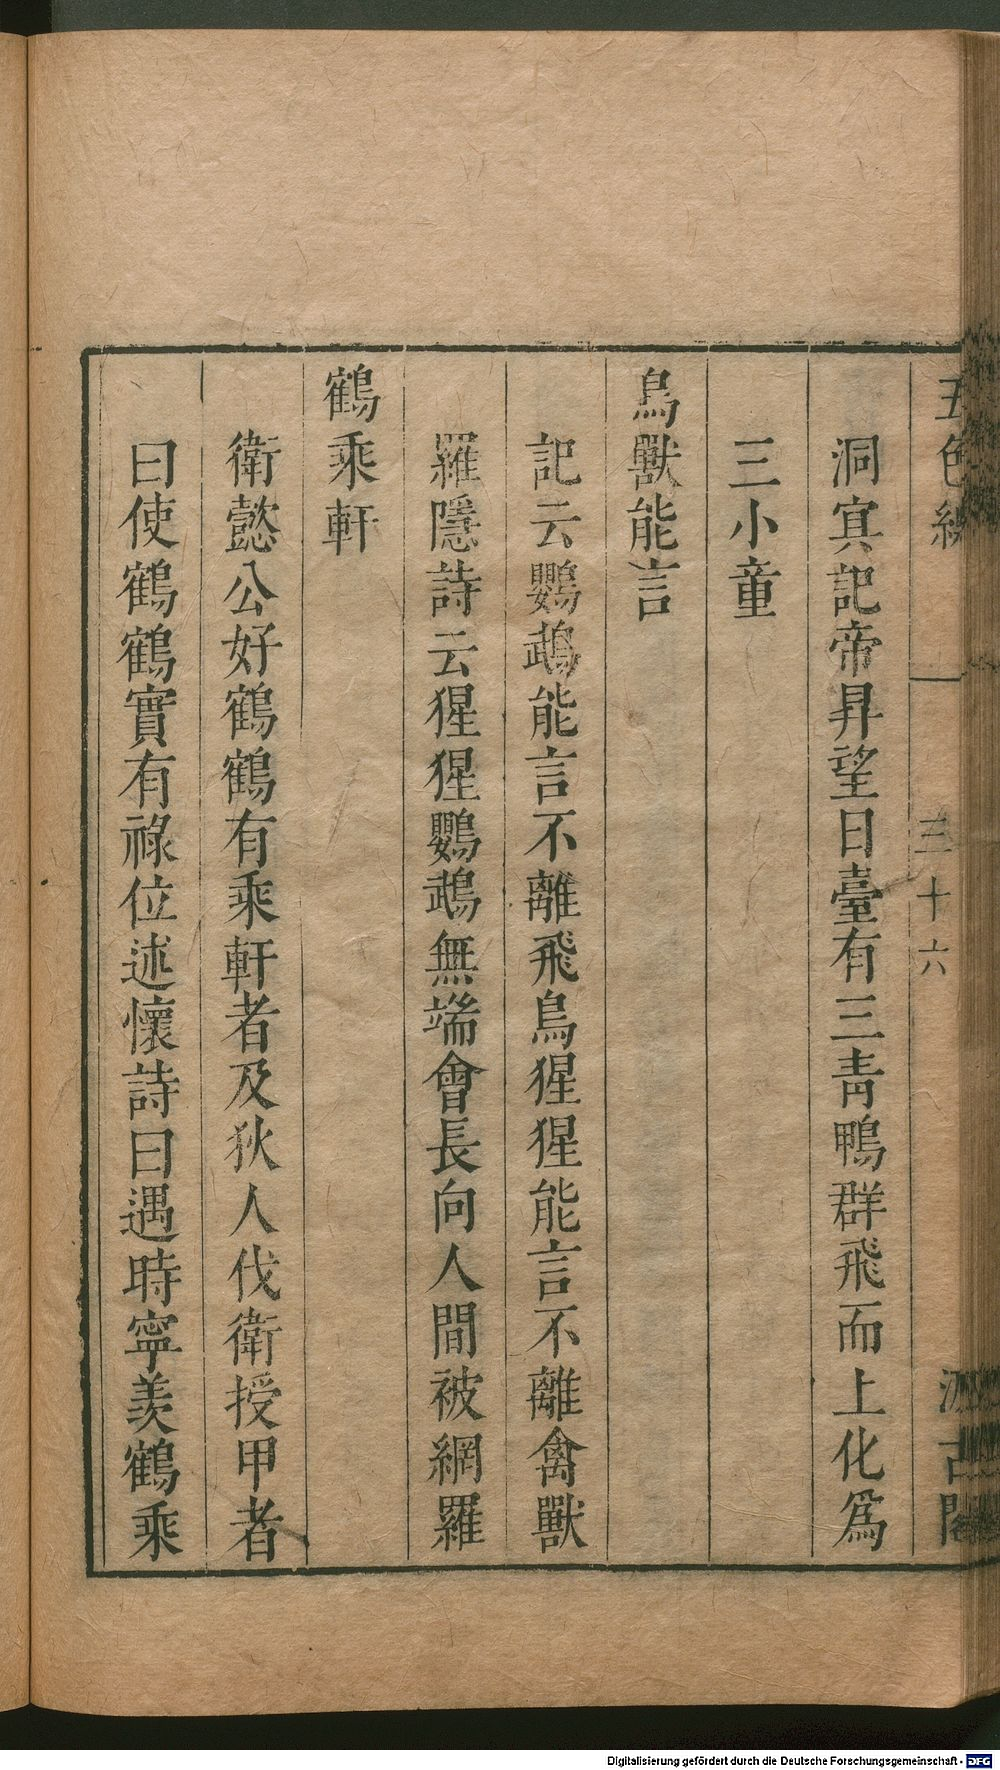 五色線 三十六 汲古閣
洞㝠記帝昇望日臺有三靑鴨群飛而上化爲
三小童
鳥獸能言
記云鸚鵡能言不離飛鳥猩猩能言不離禽獸
羅隱詩云猩猩鸚鵡無端會長向人間被網羅
鶴乘軒
衛懿公好鶴鶴有乘軒者及狄人伐衛授甲者
曰使鶴鶴實有祿位述懷詩曰遇時寧羨鶴乘
Digitalisierung gefördert durch die Deutsche Forschungsgemeinschaft - DFG